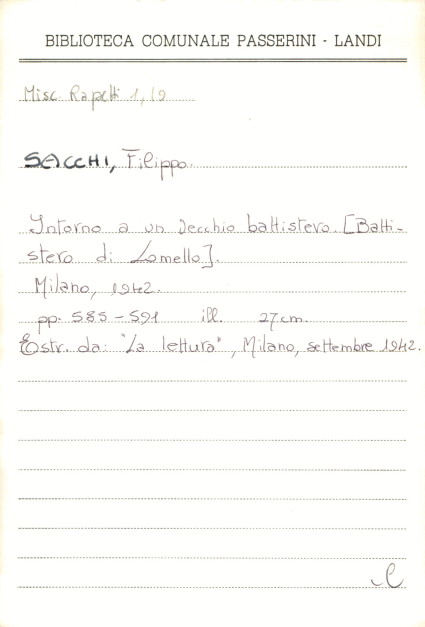 BIBLIOTECA COMUNALE PASSERINI - LANDI
Misc. Rapetti 1,19
SACCHI, Filippo.
Intorno a un vecchio battistero. [Batti-
stero di Lomello].
Milano, 1942.
pp. 585-591 ill. 27 cm.
Estr. da: "La lettura", Milano, settembre 1942.